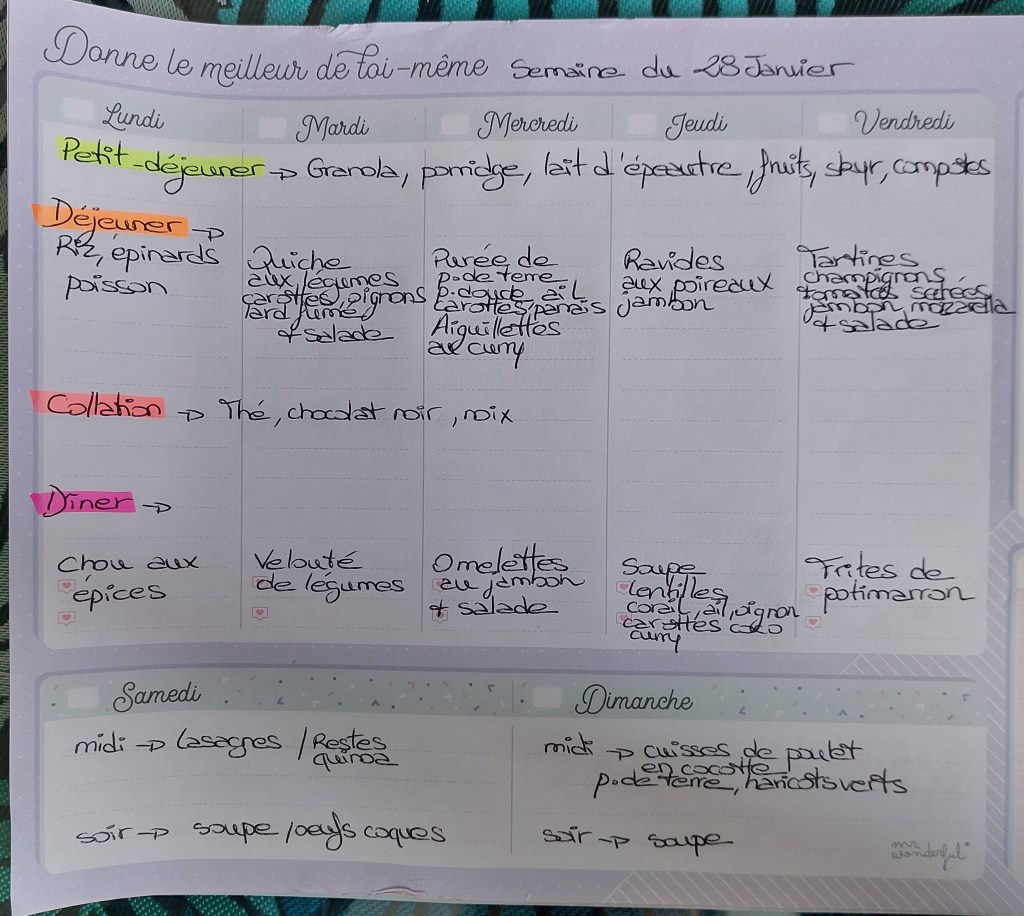 Donne le meilleur de toi-même Semaine du 28 Janvier
Lundi Mardi Mercredi Jeudi Vendredi
Petit-déjeuner → Granola, porridge, lait d'épeautre, fruits, skyr, compotes
Déjeuner →
Riz, épinards
poisson
Quiche
aux légumes
carottes, oignons
lard fumé
+ salade
Purée de
p.de terre
p.douce, ail
carottes, panais
Aiguillettes
au curry
Ravioles
aux poireaux
jambon
Tartines
champignons
tomates séchées
jambon, mozzarella
+ salade
Collation → Thé, chocolat noir, noix
Dîner →
Chou aux
épices
Velouté
de légumes
Omelettes
au jambon
+ salade
Soupe
lentilles
corail, ail, oignon
carottes coco
curry
Frites de
potimarron
Samedi
midi → Lasagnes / Restes
quinoa
soir → soupe / oeufs coques
Dimanche
midi → cuisses de poulet
en cocotte
p.de terre, haricots verts
soir → soupe
mr.
wonderful*